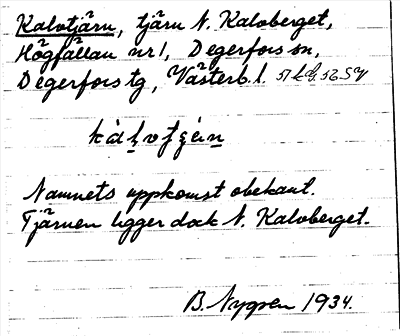 Kalvtjärn, tjärn N. Kalvberget,
Högfällan nr 1, Degerfors sn,
Degerfors tg, Västerb. l.
Namnets uppkomst obekant.
Tjärnen ligger dock N. Kalvberget.
B. Nygren 1934.